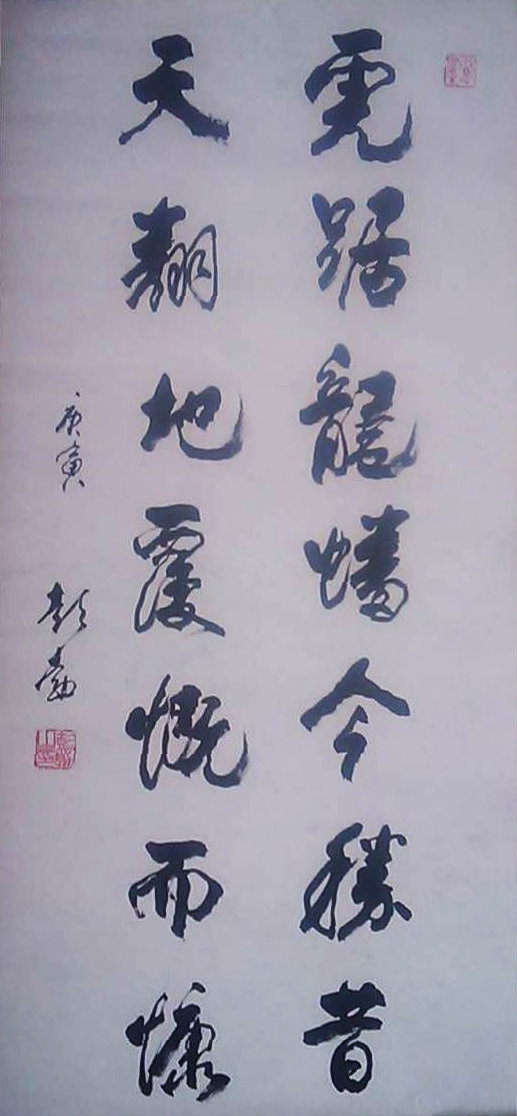 虎踞龍蟠今勝昔
天翻地覆慨而慷
庚寅
彭勃